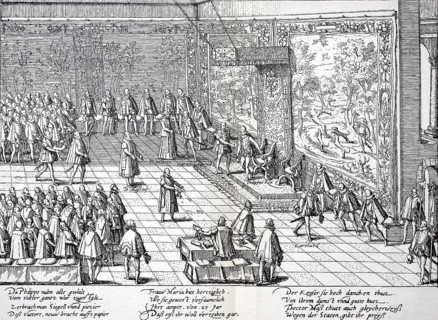 Da Philippo nuhn alle gwalt
Vom vatter gantz war
Zerbrach man Siegell vnnd pitzier
Diss vatters, newe bracht auffs papier
Fraw Maria biet hertzoglich
Wo sie gewest
Ihrs ampts von 25 Jar
Dass es ihr woll verziehen gar.
Der Keyser sie hoch dancken thut
Von ihrem dienst vnnd gute hut.
Doctor Mass thutt auch gleycherweyss
Wegen der Staten, gibt ihr preyss